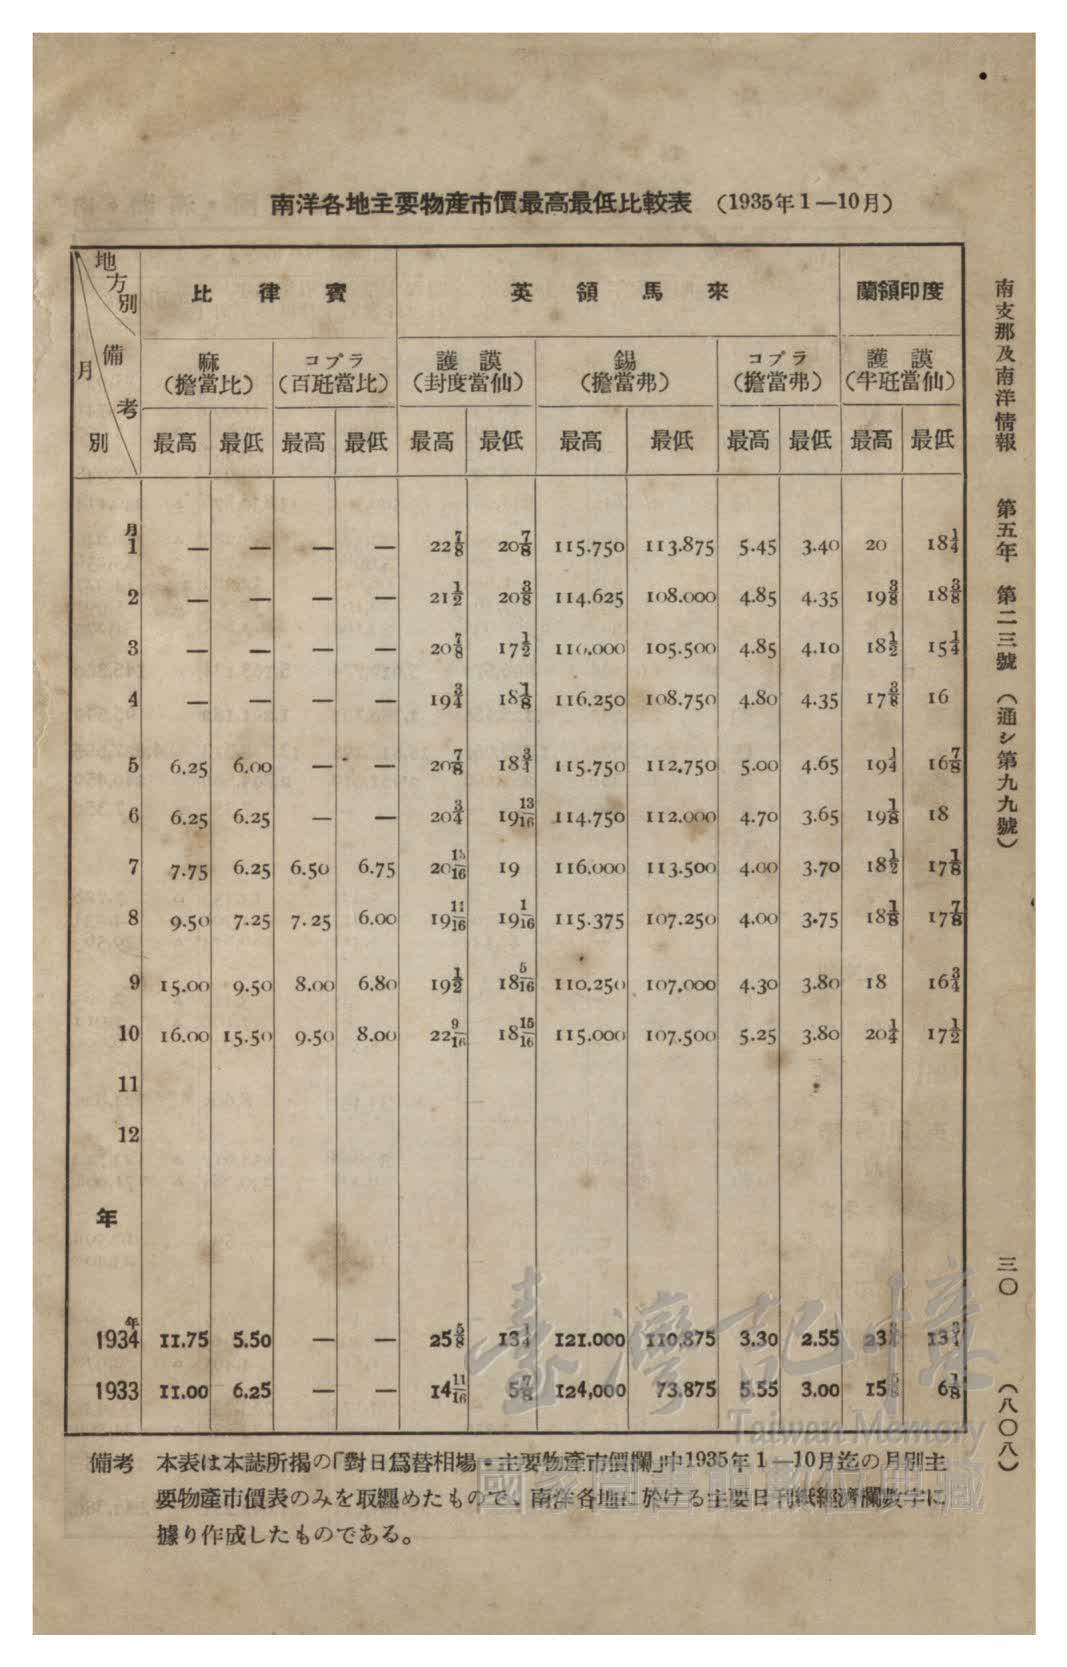 南洋各地主要物産市價最高最低比較表 (1935年1—10月)
地方別 備考 月別
比律賓 英領馬來 蘭領印度
麻 コプラ 護謨 錫 コプラ 護謨
(擔當比) (百瓩當比) (封度當仙) (擔當弗) (擔當弗) (半瓩當仙)
最高 最低 最高 最低 最高 最低 最高 最低 最高 最低 最高 最低
月
1 — — — — 22⅞ 20⅞ 115.750 113.875 5.45 3.40 20 18¼
2 — — — — 21½ 20⅜ 114.625 108.000 4.85 4.35 19⅜ 18⅜
3 — — — — 20⅞ 17½ 110.000 105.500 4.85 4.10 18½ 15¼
4 — — — — 19¾ 18⅛ 116.250 108.750 4.80 4.35 17⅜ 16
5 6.25 6.00 — — 20⅞ 18¾ 115.750 112.750 5.00 4.65 19¼ 16⅞
6 6.25 6.25 — — 20¾ 19 13/16 114.750 112.000 4.70 3.65 19⅛ 18
7 7.75 6.25 6.50 6.75 20 15/16 19 116.000 113.500 4.00 3.70 18½ 17⅛
8 9.50 7.25 7.25 6.00 19 11/16 19 1/16 115.375 107.250 4.00 3.75 18⅛ 17⅞
9 15.00 9.50 8.00 6.80 19½ 18 5/16 110.250 107.000 4.30 3.80 18 16¾
10 16.00 15.50 9.50 8.00 22 9/16 18 15/16 115.000 107.500 5.25 3.80 20¼ 17½
11
12
年
年
1934 11.75 5.50 — — 25⅝ 13¼ 121.000 110.875 3.30 2.55 23 13
1933 11.00 6.25 — — 14 11/16 5⅞ 124,000 73.875 5.55 3.00 15 6⅛
備考 本表は本誌所揭の「對日爲替相場・主要物產市價欄」中1935年1—10月迄の月別主
要物產市價表のみを取纒めたもので、南洋各地に於ける主要日刊紙經濟欄數字に
據り作成したものである。
南支那及南洋情報 第五年 第二三號 (通シ第九九號) 三〇 (八〇〇八)
臺灣記憶
Taiwan Memory
國家圖書館數位典藏